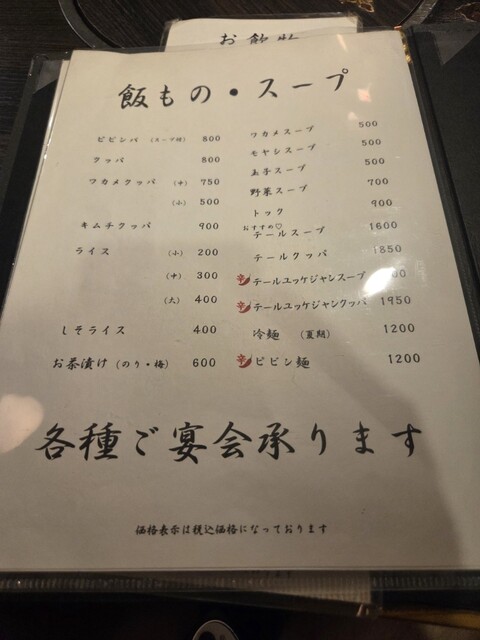 お飲物
飯もの・スープ
ビビンバ (スープ付) 800
クッパ 800
ワカメクッパ (中) 750
(小) 500
キムチクッパ 900
ライス (小) 200
(中) 300
(大) 400
しそライス 400
お茶漬け (のり・梅) 600
ワカメスープ 500
モヤシスープ 500
玉子スープ 500
野菜スープ 700
トック 900
おすすめ♡
テールスープ 1600
テールクッパ 1850
辛 テールユッケジャンスープ
辛 テールユッケジャンクッパ 1950
冷麺 (夏期) 1200
辛 ビビン麺 1200
各種ご宴会承ります
価格表示は税込価格になっております